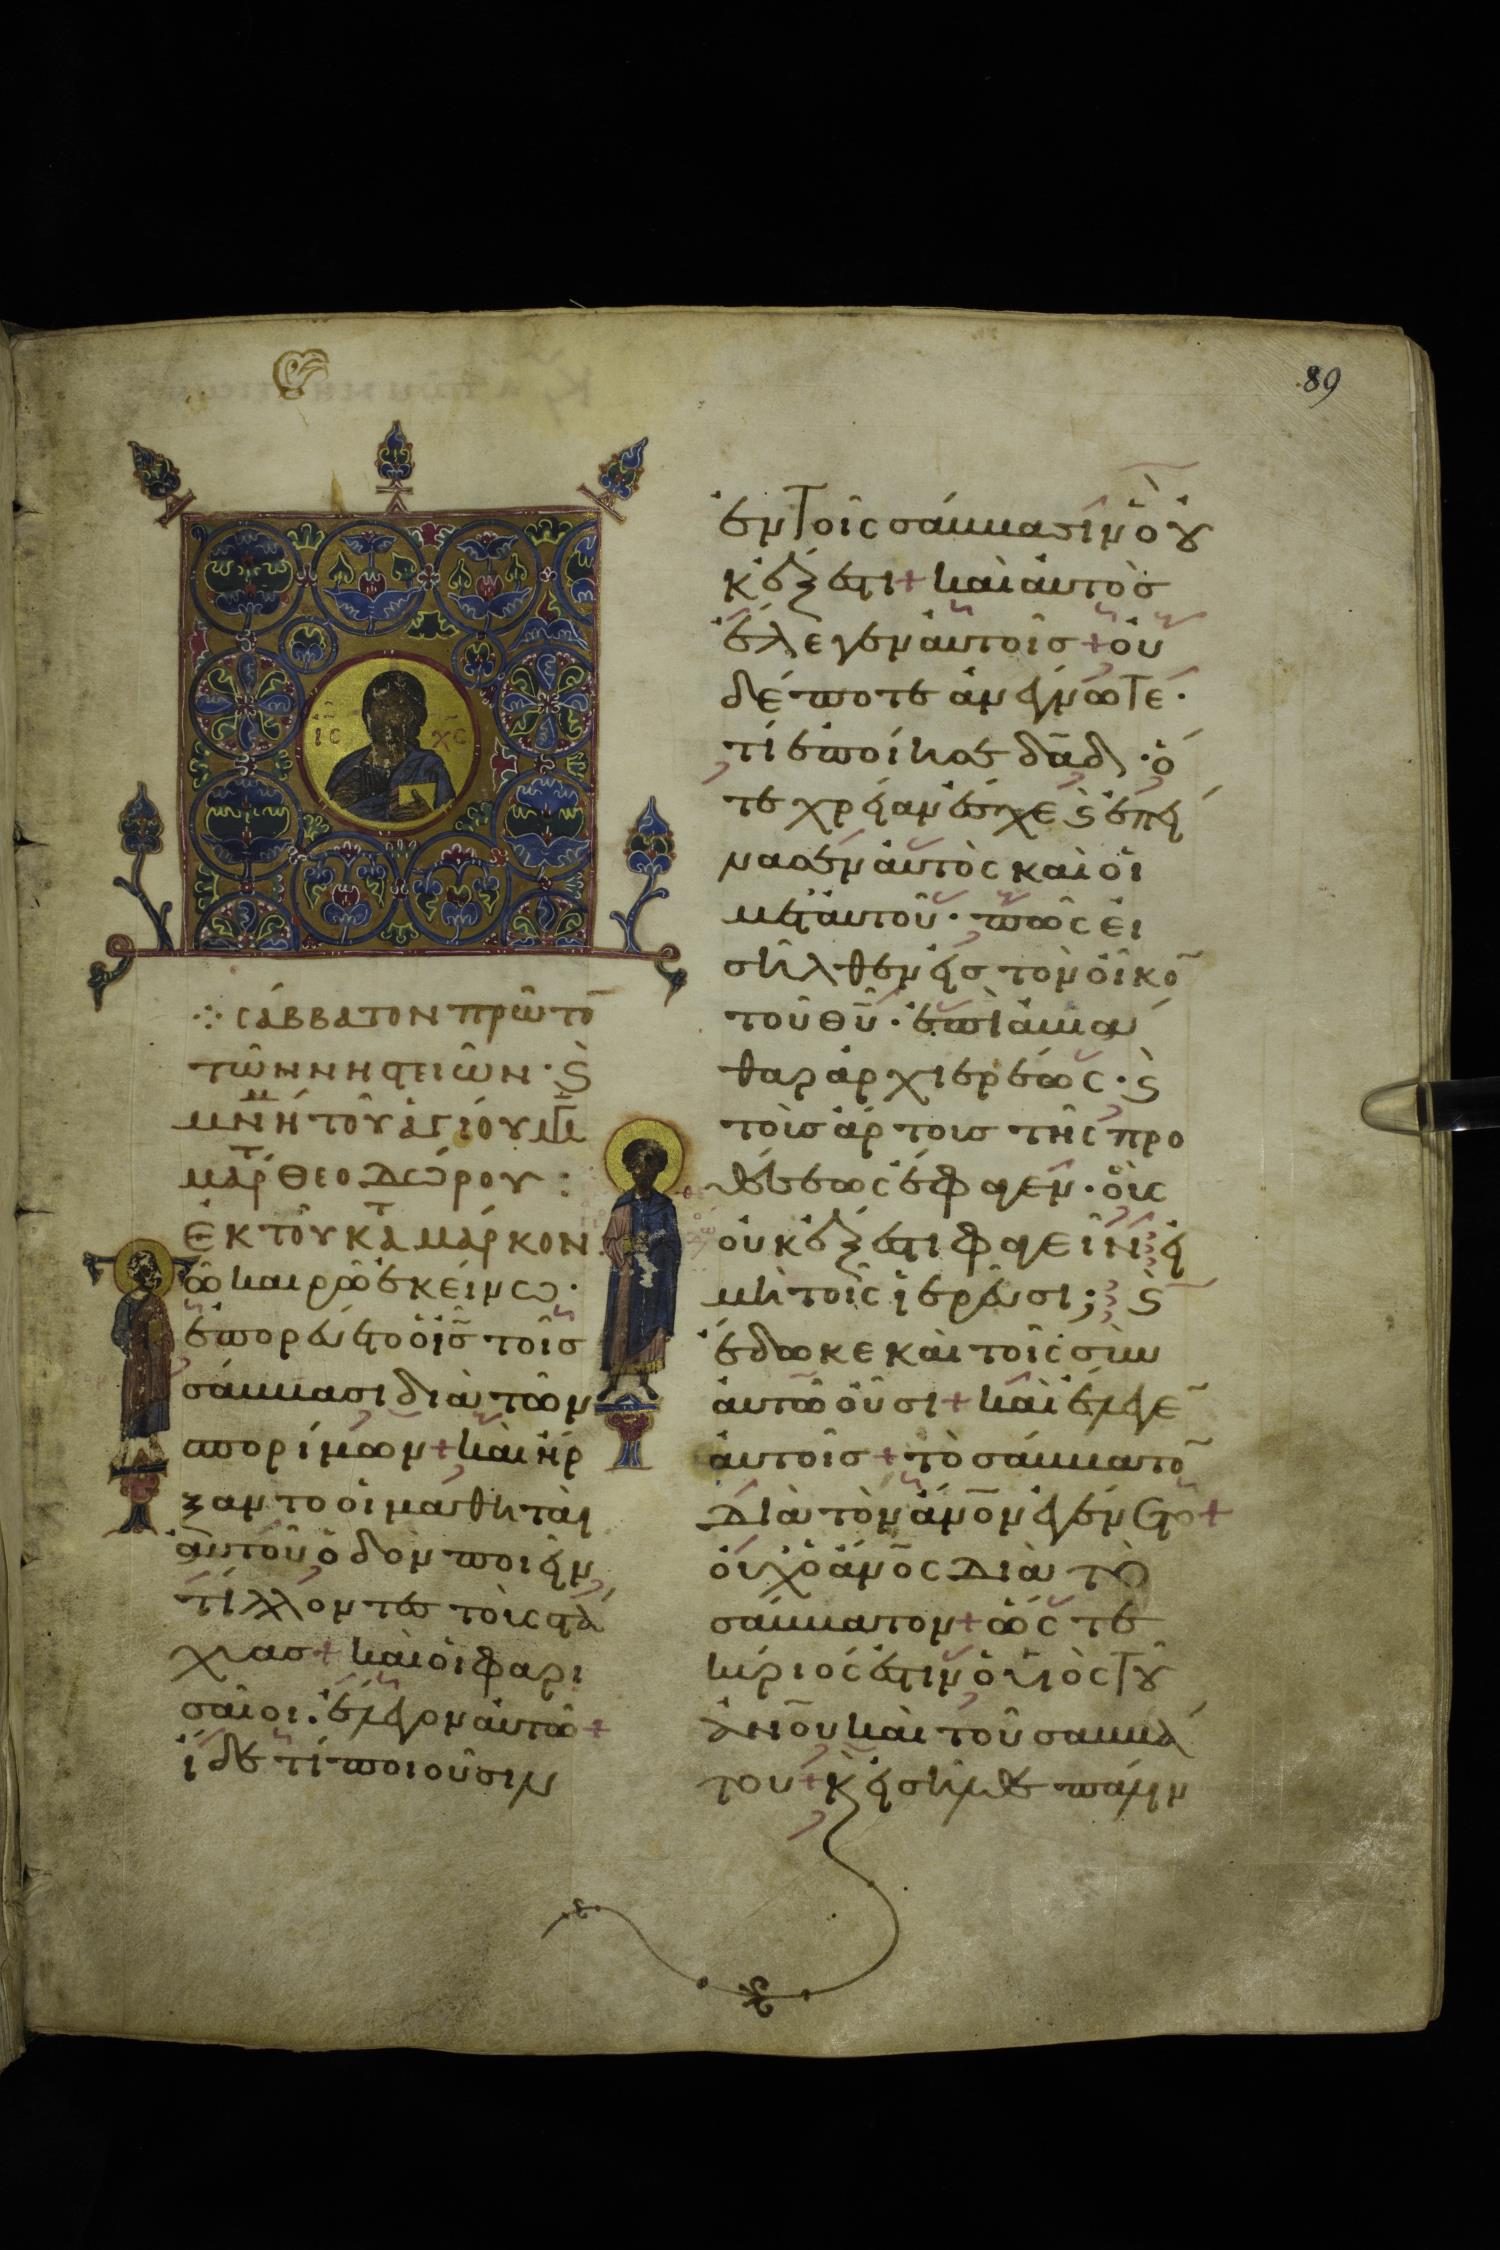 89
ΙC ΧC
σάββατον πρῶτο̄
τῶν νηστειῶν· ϛ̀
μν̄ή τοῦ ἁγίου μ̄γ
μάρ̄τ θεοδώρου:
Ἐκ τοῦ κατ̄ὰ μάρκον
ῶ καιρῶ ἐκείνω·
ἐπορεύετο ὁ ἰς̄ τοῖς
σάββασι διὰ τῶν
σπορίμων + καὶ ἤρ
ξαντο οἱ μαθηταὶ
αὐτοῦ ὁδὸν ποιεῖν
τίλλοντες τοὺς στά
χυας + καὶ οἱ φαρι
σαῖοι. ἔλεγον αὐτῶ +
ἴδε τί ποιοῦσιν
ἐν τοῖς σάββασιν ὃ οὐ
κ ἔξεστι + καὶ αὐτὸς
ἔλεγεν αὐτοῖς + οὐ
δέποτε ἀνέγνωτε·
τί ἐποίησε δᾱδ· ὅ
τε χρείαν ἔσχε ϛ̀ ἐπεί
νασεν αὐτὸς καὶ οἱ
μετ' αὐτοῦ· πῶς εἰ
σῆλθεν εἰς τὸν οἶκο̄
τοῦ θῡ· ἐπὶ ἀβιά
θαρ ἀρχιερέως· ϛ̀
τοὺς ἄρτους τῆς προ
θέσεως ἔφαγεν· οὓς
οὐκ ἔξεστι φαγεῖν εἰ
μὴ τοῖς ἱερεῦσι; ϛ̀
ἔδωκε καὶ τοῖς σὺν
αὐτῶ οὖσι + καὶ ἔλεγε̄
αὐτοῖς + τὸ σάββατο̄
διὰ τὸν ἄν̄ον ἐγένετο +
οὐχ ὁ ἄν̄ος διὰ τὸ
σάββατον + ὥστε
κύριός ἐστιν ὁ υἱὸς τοῦ
ἀν̄ου καὶ τοῦ σαββά
του + κ̀ εἰσῆλθε πάλιν